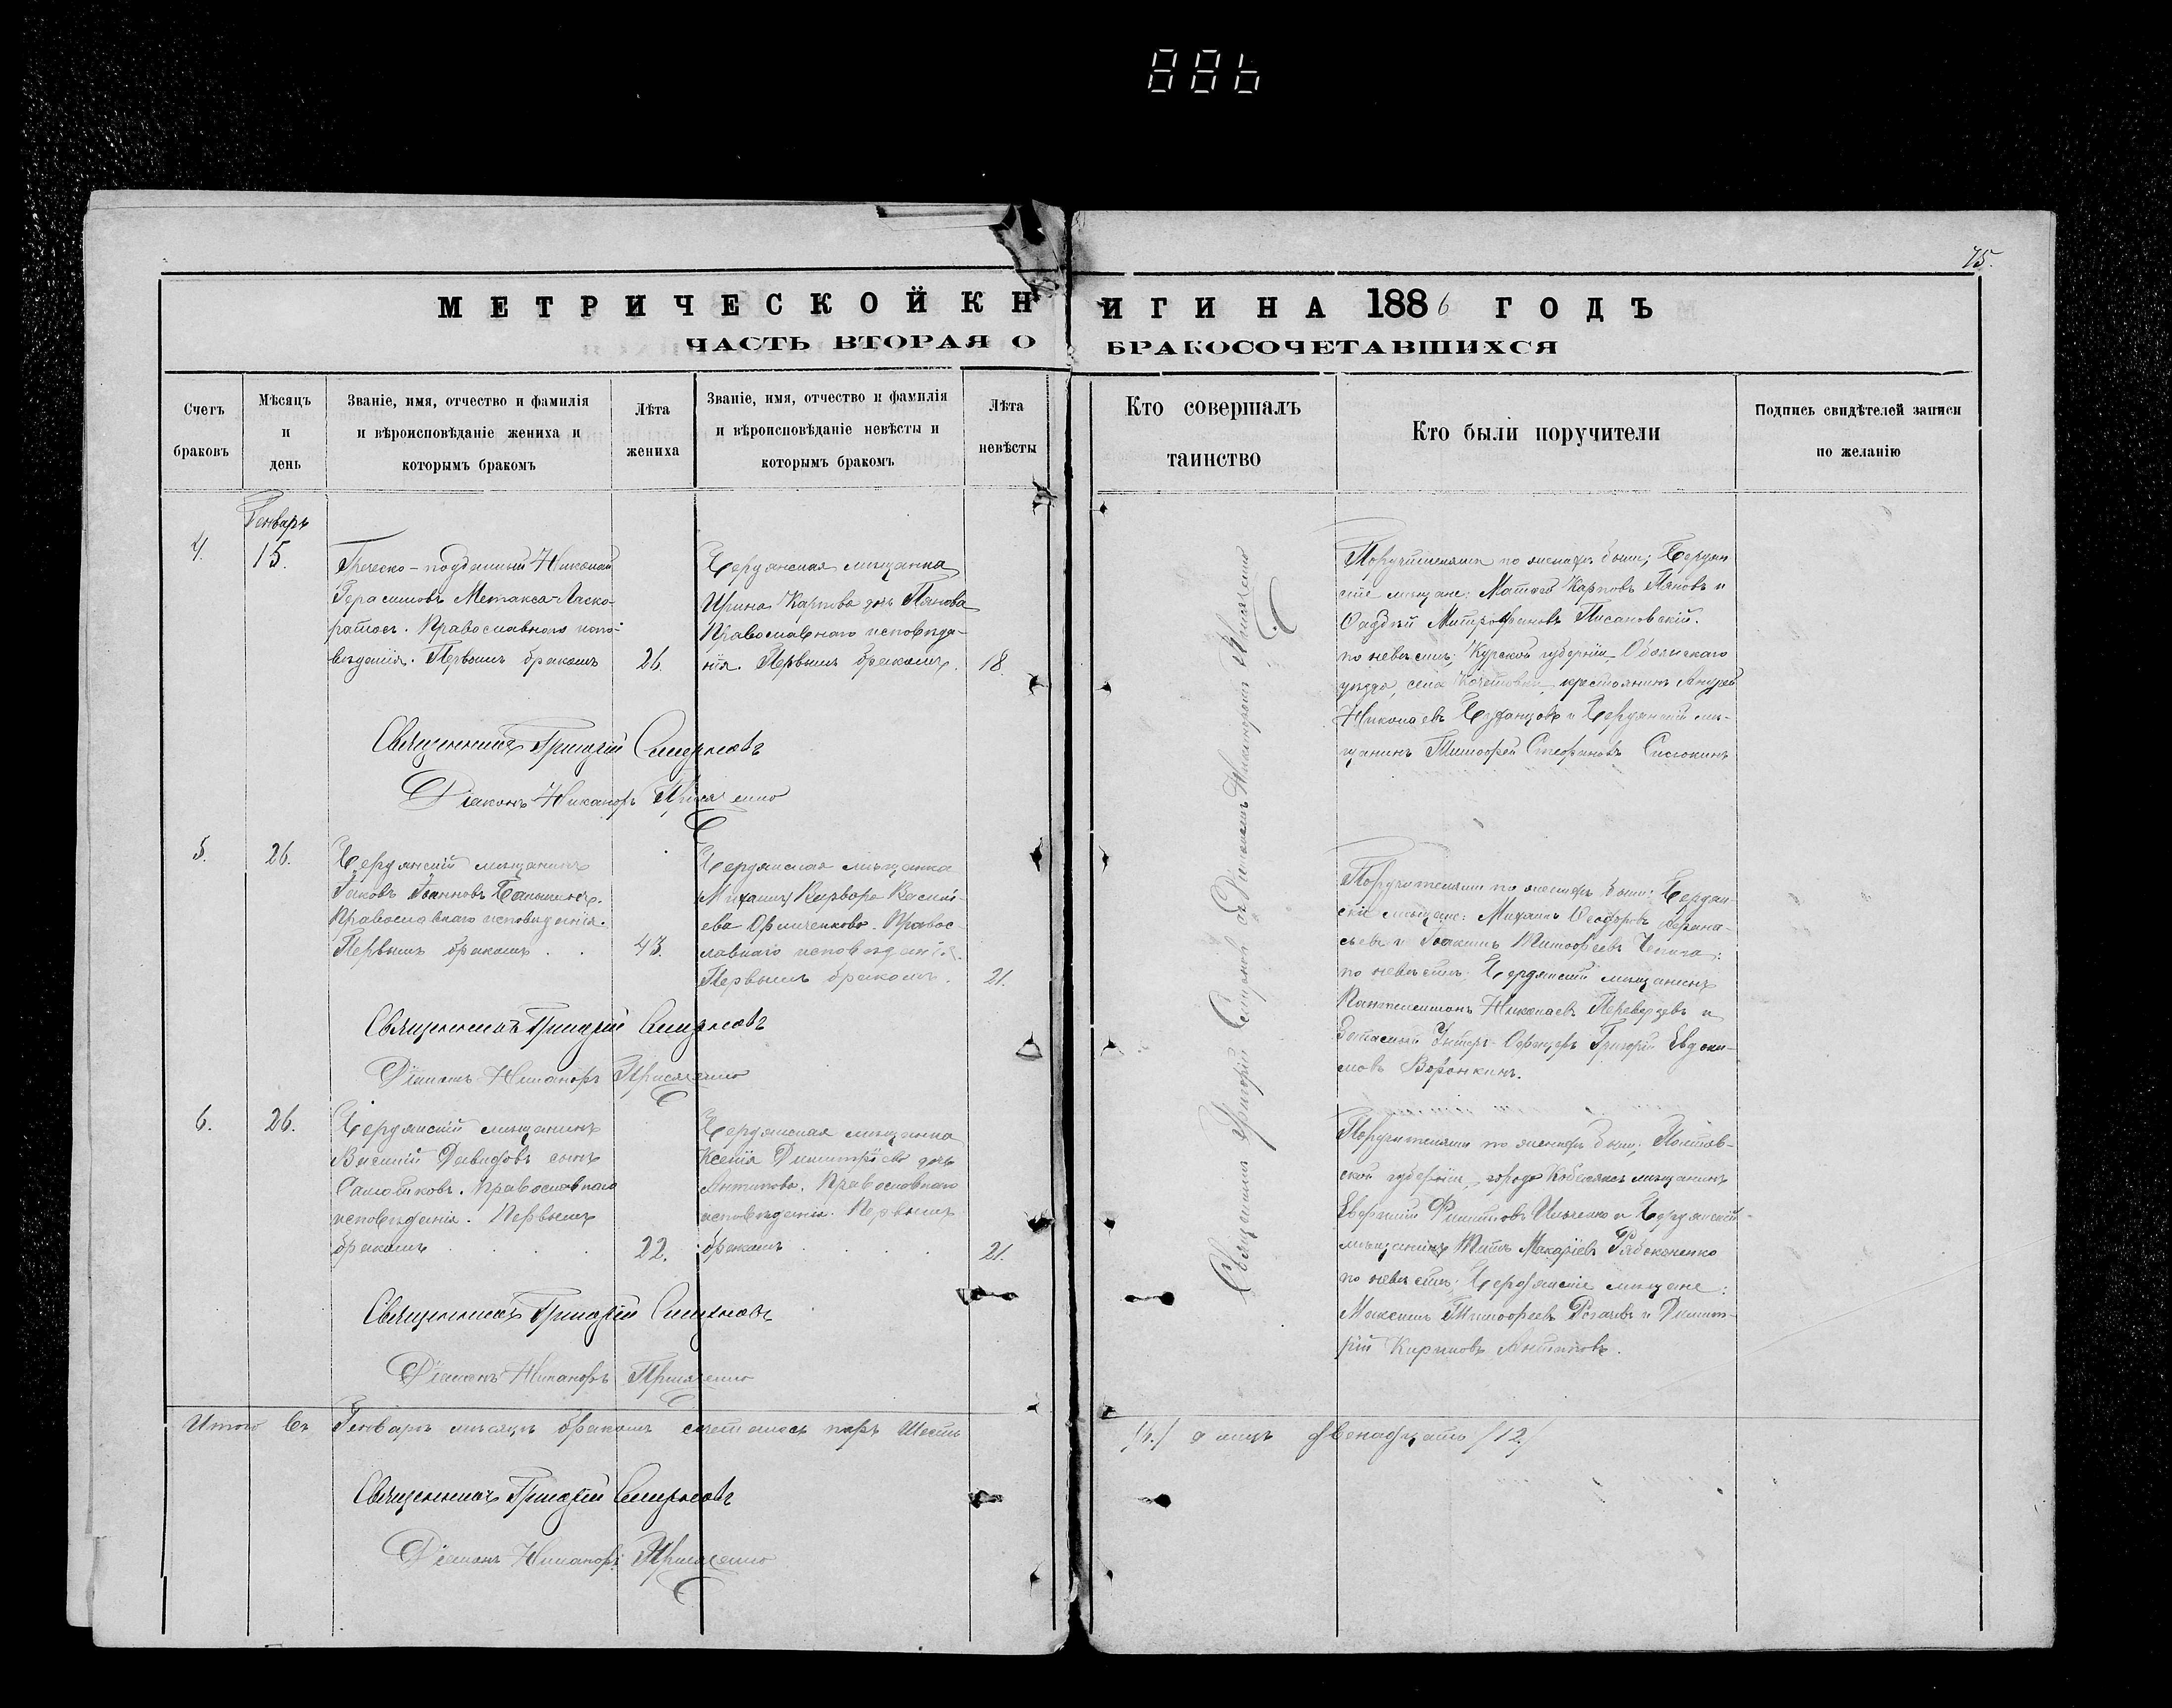 886
75.
МЕТРИЧЕСКОЙ КНИГИ НА 1886 ГОДЪ
ЧАСТЬ ВТОРАЯ О БРАКОСОЧЕТАВШИХСЯ
Счетъ браковъ
Мѣсяцъ и день
Званіе, имя, отчество и фамилія
и вѣроисповѣданіе жениха и
которымъ бракомъ
Лѣта жениха
Званіе, имя, отчество и фамилія
и вѣроисповѣданіе невѣсты и
которымъ бракомъ
Лѣта невѣсты
Кто совершалъ
таинство
Кто были поручители
Подпись свидѣтелей записи
по желанію
Генварь
4.
15.
Греческо-подданный Николай
Герасимовъ Метакса-Ласко-
ратосъ. Православнаго испо-
вѣданія. Первымъ бракомъ
26.
Бердянская мѣщанка
Ирина Карпова дочь Панова
Православнаго исповѣда-
нія. Первымъ бракомъ.
18.
Поручителями по женихѣ были; Бердян
скіе мѣщане: Матѳей Карповъ Пановъ и
Ѳаддей Митрофановъ Писановскій.
по невѣстѣ; Курской губерніи, Обоянскаго
уѣзда, села крестьянинъ Андрей
Николаевъ и Бердянскій мѣ-
щанинъ Тимоѳей Стефановъ
Священникъ Григорій Смирновъ
Діаконъ Никаноръ
5.
26.
Бердянскій мѣщанинъ
Іаковъ Іоанновъ
Православнаго исповѣданія.
Первымъ бракомъ . .
43.
Бердянская мѣщанка
Варвара Василі-
ева Правос-
лавнаго исповѣданія.
Первымъ бракомъ.
21.
Поручителями по женихѣ были: Бердян-
скіе мѣщане: Михаилъ Ѳеодоровъ
и Іоакимъ Тимоѳеевъ
по невѣстѣ: Бердянскій мѣщанинъ
Пантелеимонъ Николаевъ Переверзевъ и
Запасный Унтеръ-Офицеръ Григорій Евдоки-
мовъ Воронкинъ.
Священникъ Григорій Смирновъ
Діаконъ Никаноръ
6.
26.
Бердянскій мѣщанинъ
Василій Давидовъ сынъ
Православнаго
исповѣданія. Первымъ
бракомъ . . . .
22.
Бердянская мѣщанка
Ксенія Димитріева дочь
Антипова. Православнаго
исповѣданія. Первымъ
бракомъ . . . .
21.
Поручителями по женихѣ были; Полтав-
ской губерніи, города Кобелякъ мѣщанинъ
Филиповъ Ильченко и Бердянскій
мѣщанинъ Титъ Макаріевъ Рябоконенко
по невѣстѣ: Бердянскіе мѣщане:
Максимъ Тимоѳеевъ Рогачевъ и Димит-
рій Кириловъ Антиповъ.
Священникъ Григорій Смирновъ
Діаконъ Никаноръ
Священникъ Григорій Смирновъ съ Діакономъ Никаноромъ
Итого въ Генварѣ мѣсяцѣ бракомъ сочеталось паръ Шесть /6./ а лицъ двенадцать /12./
Священникъ Григорій Смирновъ
Діаконъ Никаноръ